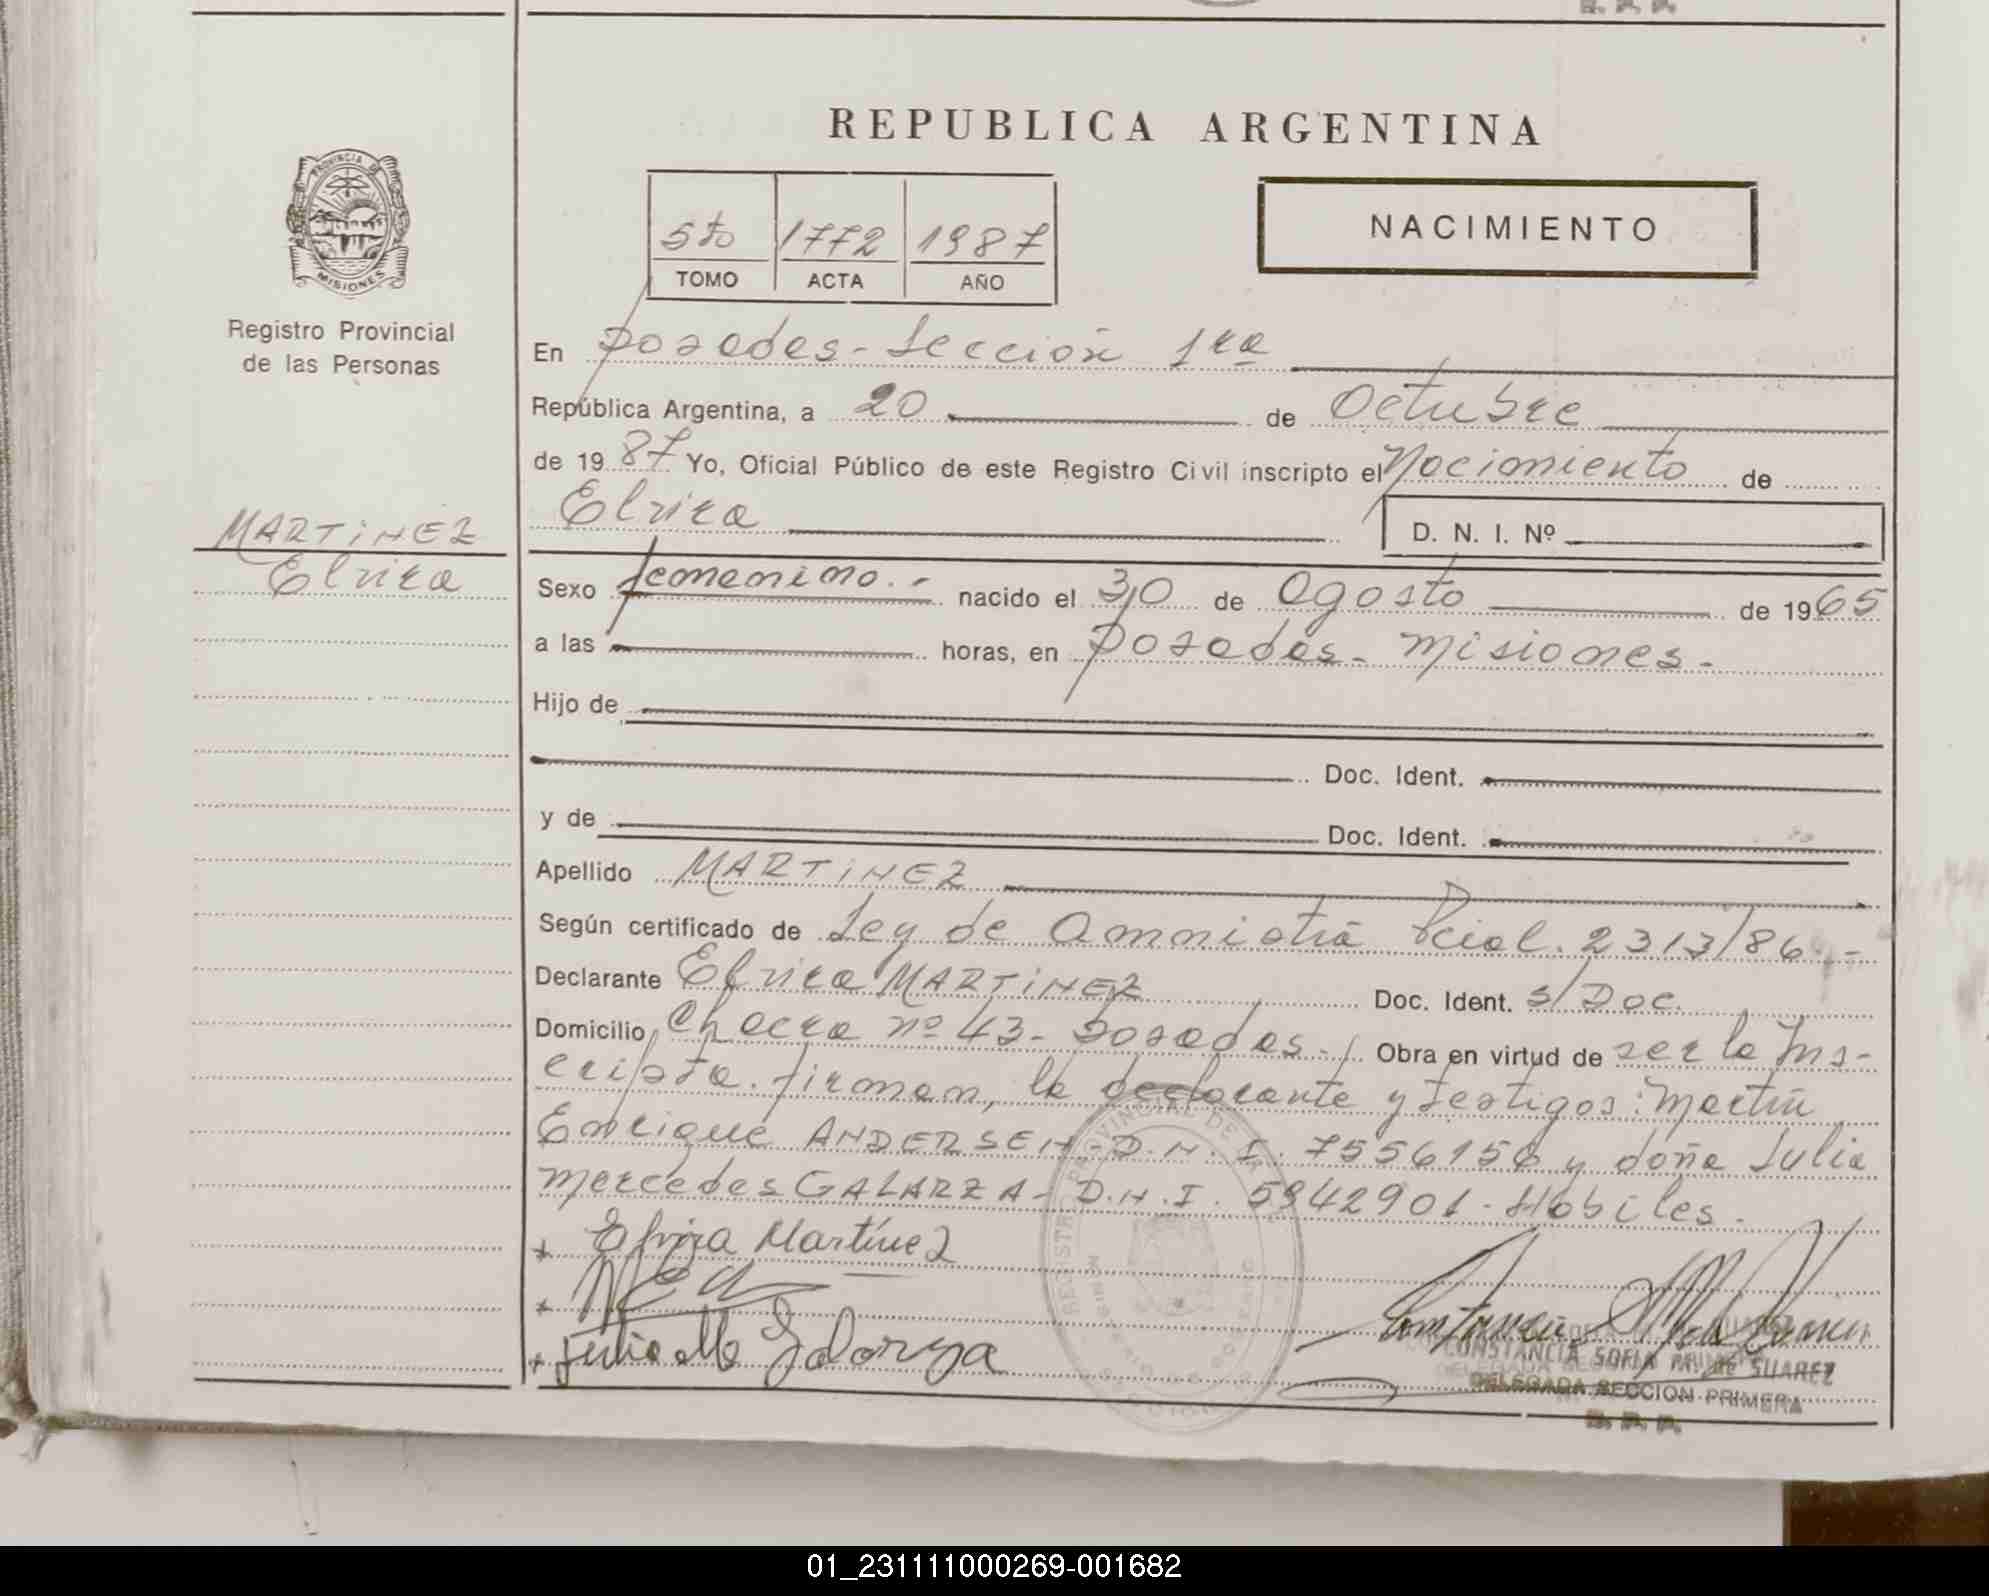 REPUBLICA ARGENTINA
5to 1772 1987
TOMO ACTA AÑO
NACIMIENTO
PROVINCIA DE
MISIONES
Registro Provincial
de las Personas
MARTINEZ
Elvira
En Posadas - Sección 1ra
República Argentina, a 20 de Octubre
de 1987 Yo, Oficial Público de este Registro Civil inscripto el Nacimiento de
Elvira D. N. I. Nº
Sexo femenino.- nacido el 30 de Agosto de 1965
a las horas, en Posadas - Misiones -
Hijo de
Doc. Ident.
y de Doc. Ident.
Apellido MARTINEZ
Según certificado de Ley de Amnistía Pcial. 2313/86 -
Declarante Elvira MARTINEZ Doc. Ident. s/Doc.
Domicilio Chacra nº 43 - Posadas - Obra en virtud de ser la Ins-
cripta. firman, la declarante y testigos: Martín
Enrique ANDERSEN - D.N.I. 7556156 y doña Julia
Mercedes GALARZA - D.N.I. 5942901 - Hábiles -
Elvira Martínez
Julia M Galarza
CONSTANCIA SOFIA M. DE SUAREZ
DELEGADA SECCION PRIMERA
R. P. P.
01_231111000269-001682